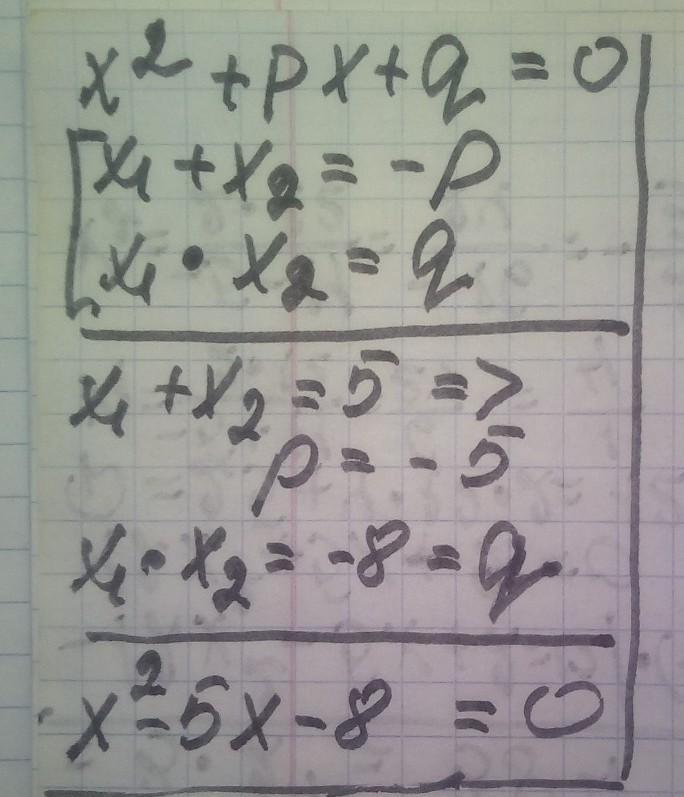 x² + px + q = 0
x₁ + x₂ = -p
x₁ • x₂ = q
x₁ + x₂ = 5 =>
p = - 5
x₁ • x₂ = -8 = q
x² - 5x - 8 = 0